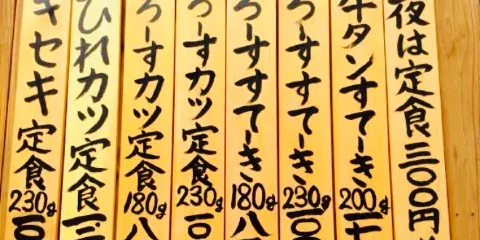 夜は定食三〇〇円
牛タンすてーき200g
ろーすすてーき230g
ろーすすてーき180g八
ろーすカツ定食230g
ろーすカツ定食180g八
ひれカツ定食
キセキ定食230g